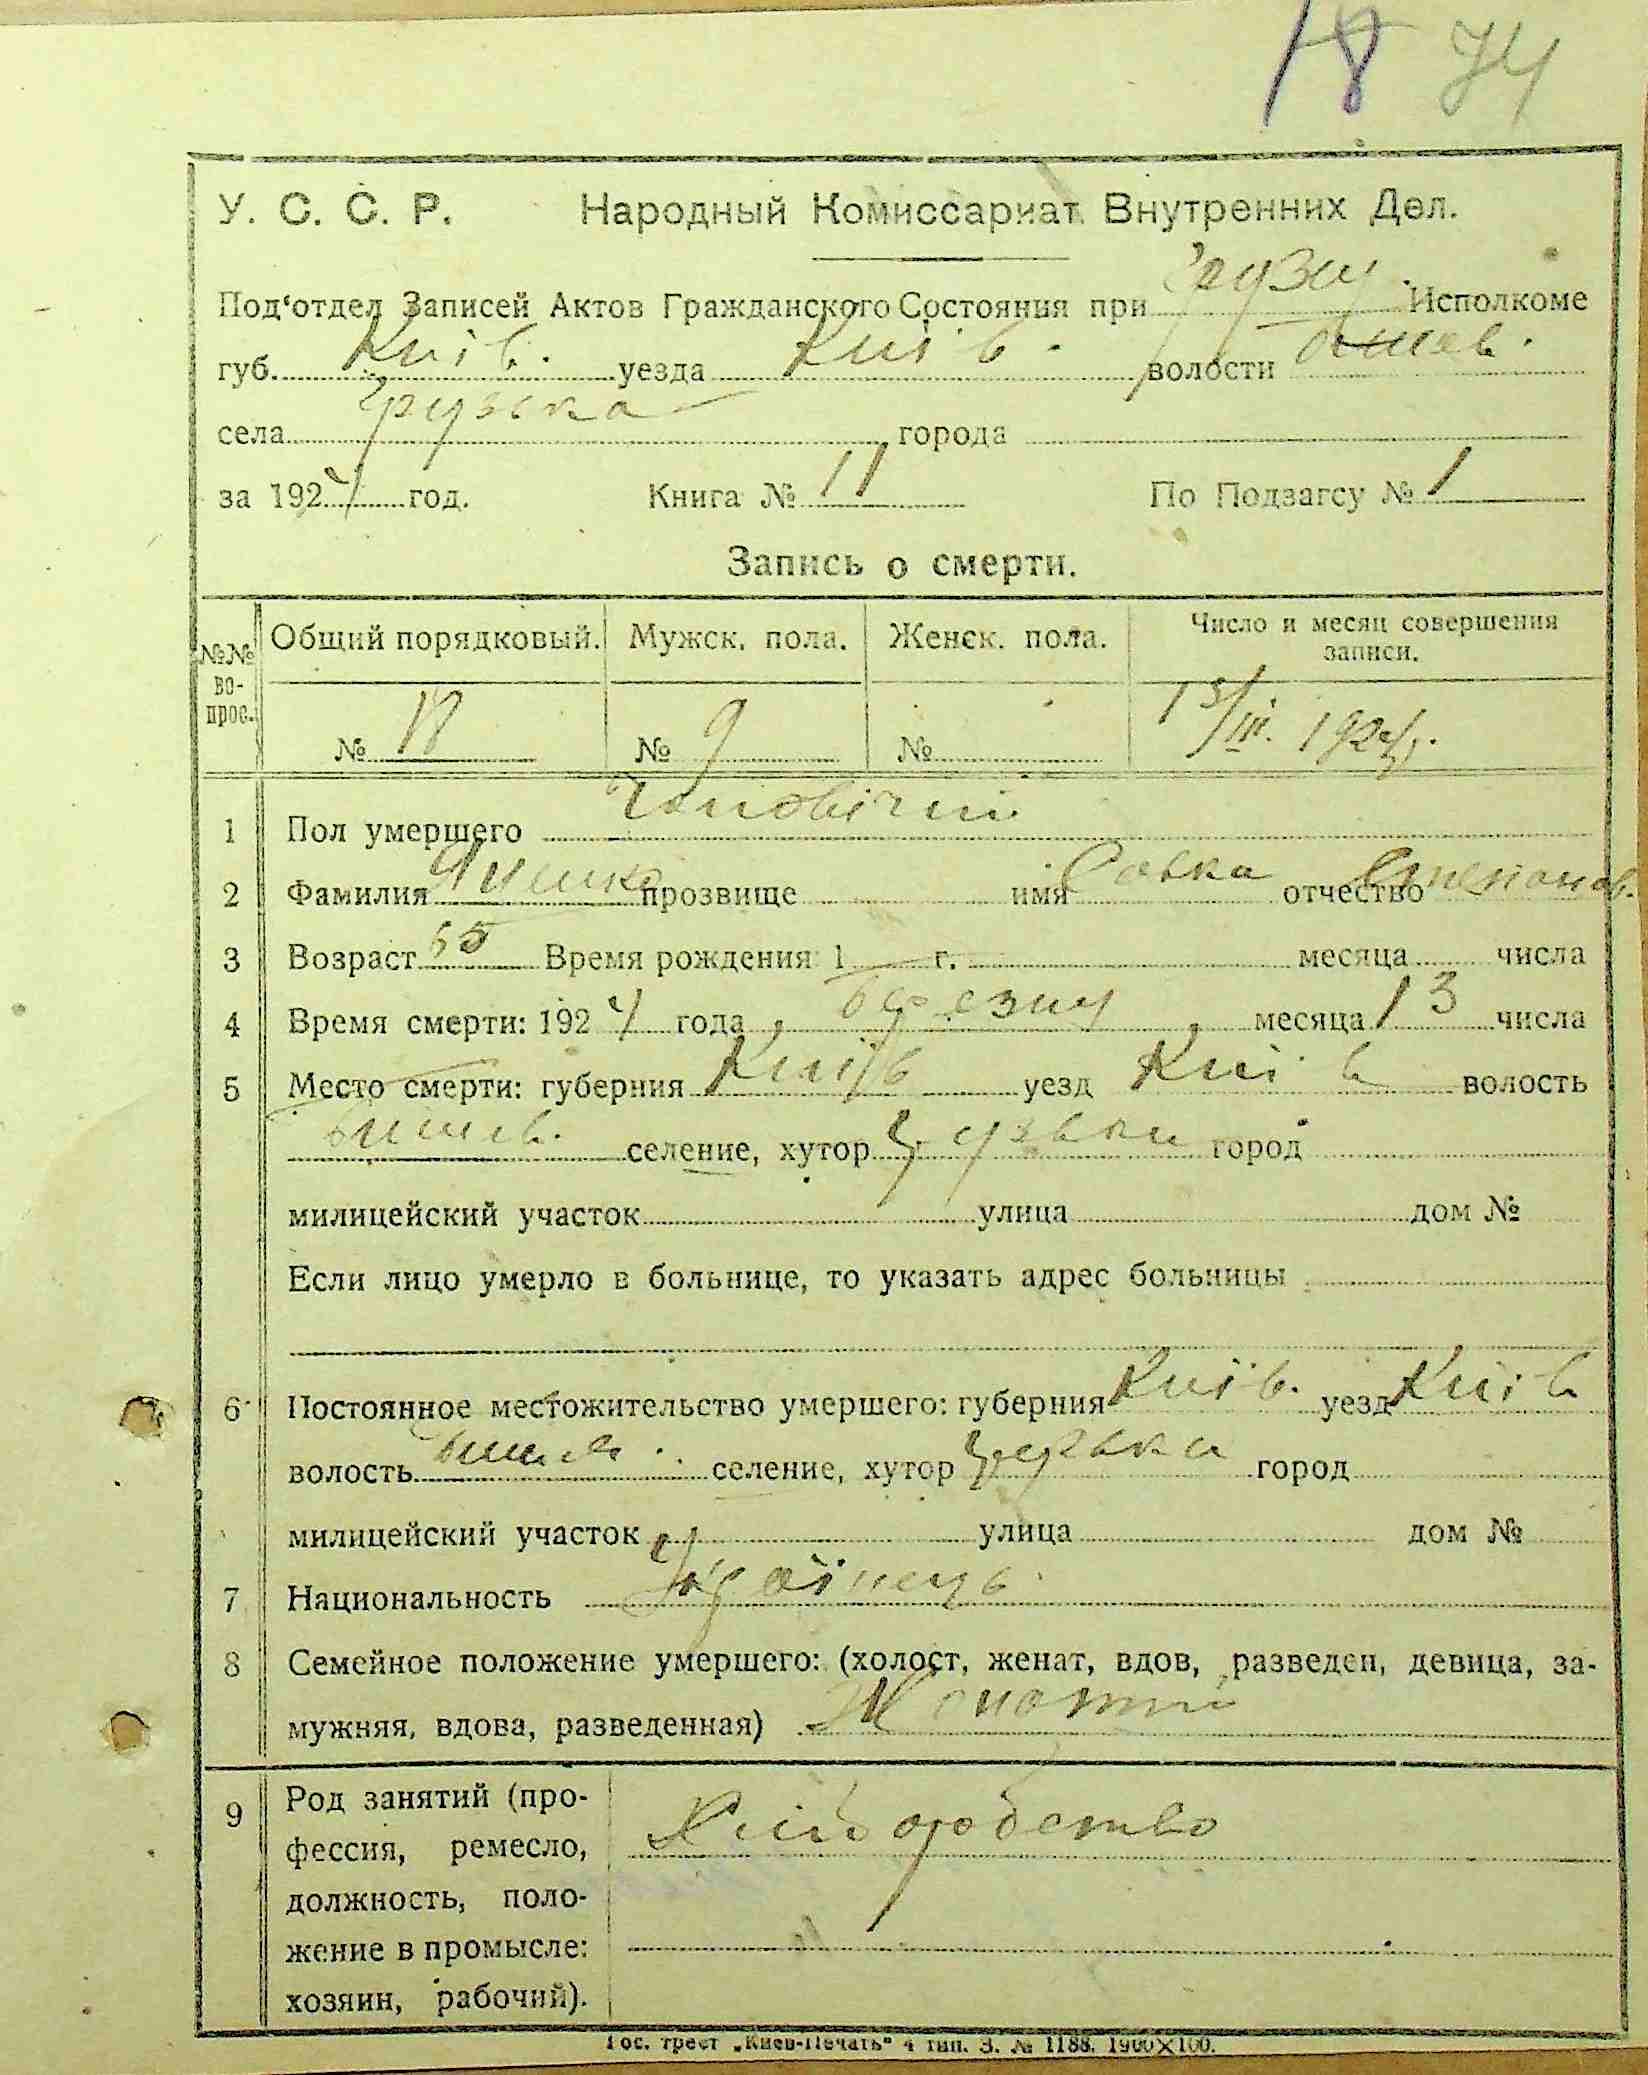 18 74
У. С. С. Р. Народный Комиссариат Внутренних Дел.
Под'отдел Записей Актов Гражданского Состояния при Грузц. Исполкоме
губ. Київ. уезда Київ. волости Бишев.
села Грузька города
за 1924 год. Книга № 11 По Подзагсу № 1
Запись о смерти.
№№ вопрос. Общий порядковый. Мужск. пола. Женск. пола. Число и месяц совершения записи.
№ 18 № 9 № 15/III. 1924р.
1 Пол умершего Чоловічий
2 Фамилия прозвище имя Савка отчество Степанов.
3 Возраст 65 Время рождения 1 г. месяца числа
4 Время смерти: 1924 года, березня, месяца 13 числа
5 Место смерти: губерния Київ уезд Київ волость
Бишев. селение, хутор Грузька город
милицейский участок улица дом №
Если лицо умерло в больнице, то указать адрес больницы
6 Постоянное местожительство умершего: губерния Київ. уезд Київ
волость Бишев. селение, хутор Грузька город
милицейский участок улица дом №
7 Национальность Українець
8 Семейное положение умершего: (холост, женат, вдов, разведен, девица, за-
мужняя, вдова, разведенная) Жонатий
9 Род занятий (про-
фессия, ремесло, Хліборобство
должность, поло-
жение в промысле:
хозяин, рабочий).
Гос. трест „Киев-Печать" 4 тип. З. № 1188. 1900×100.